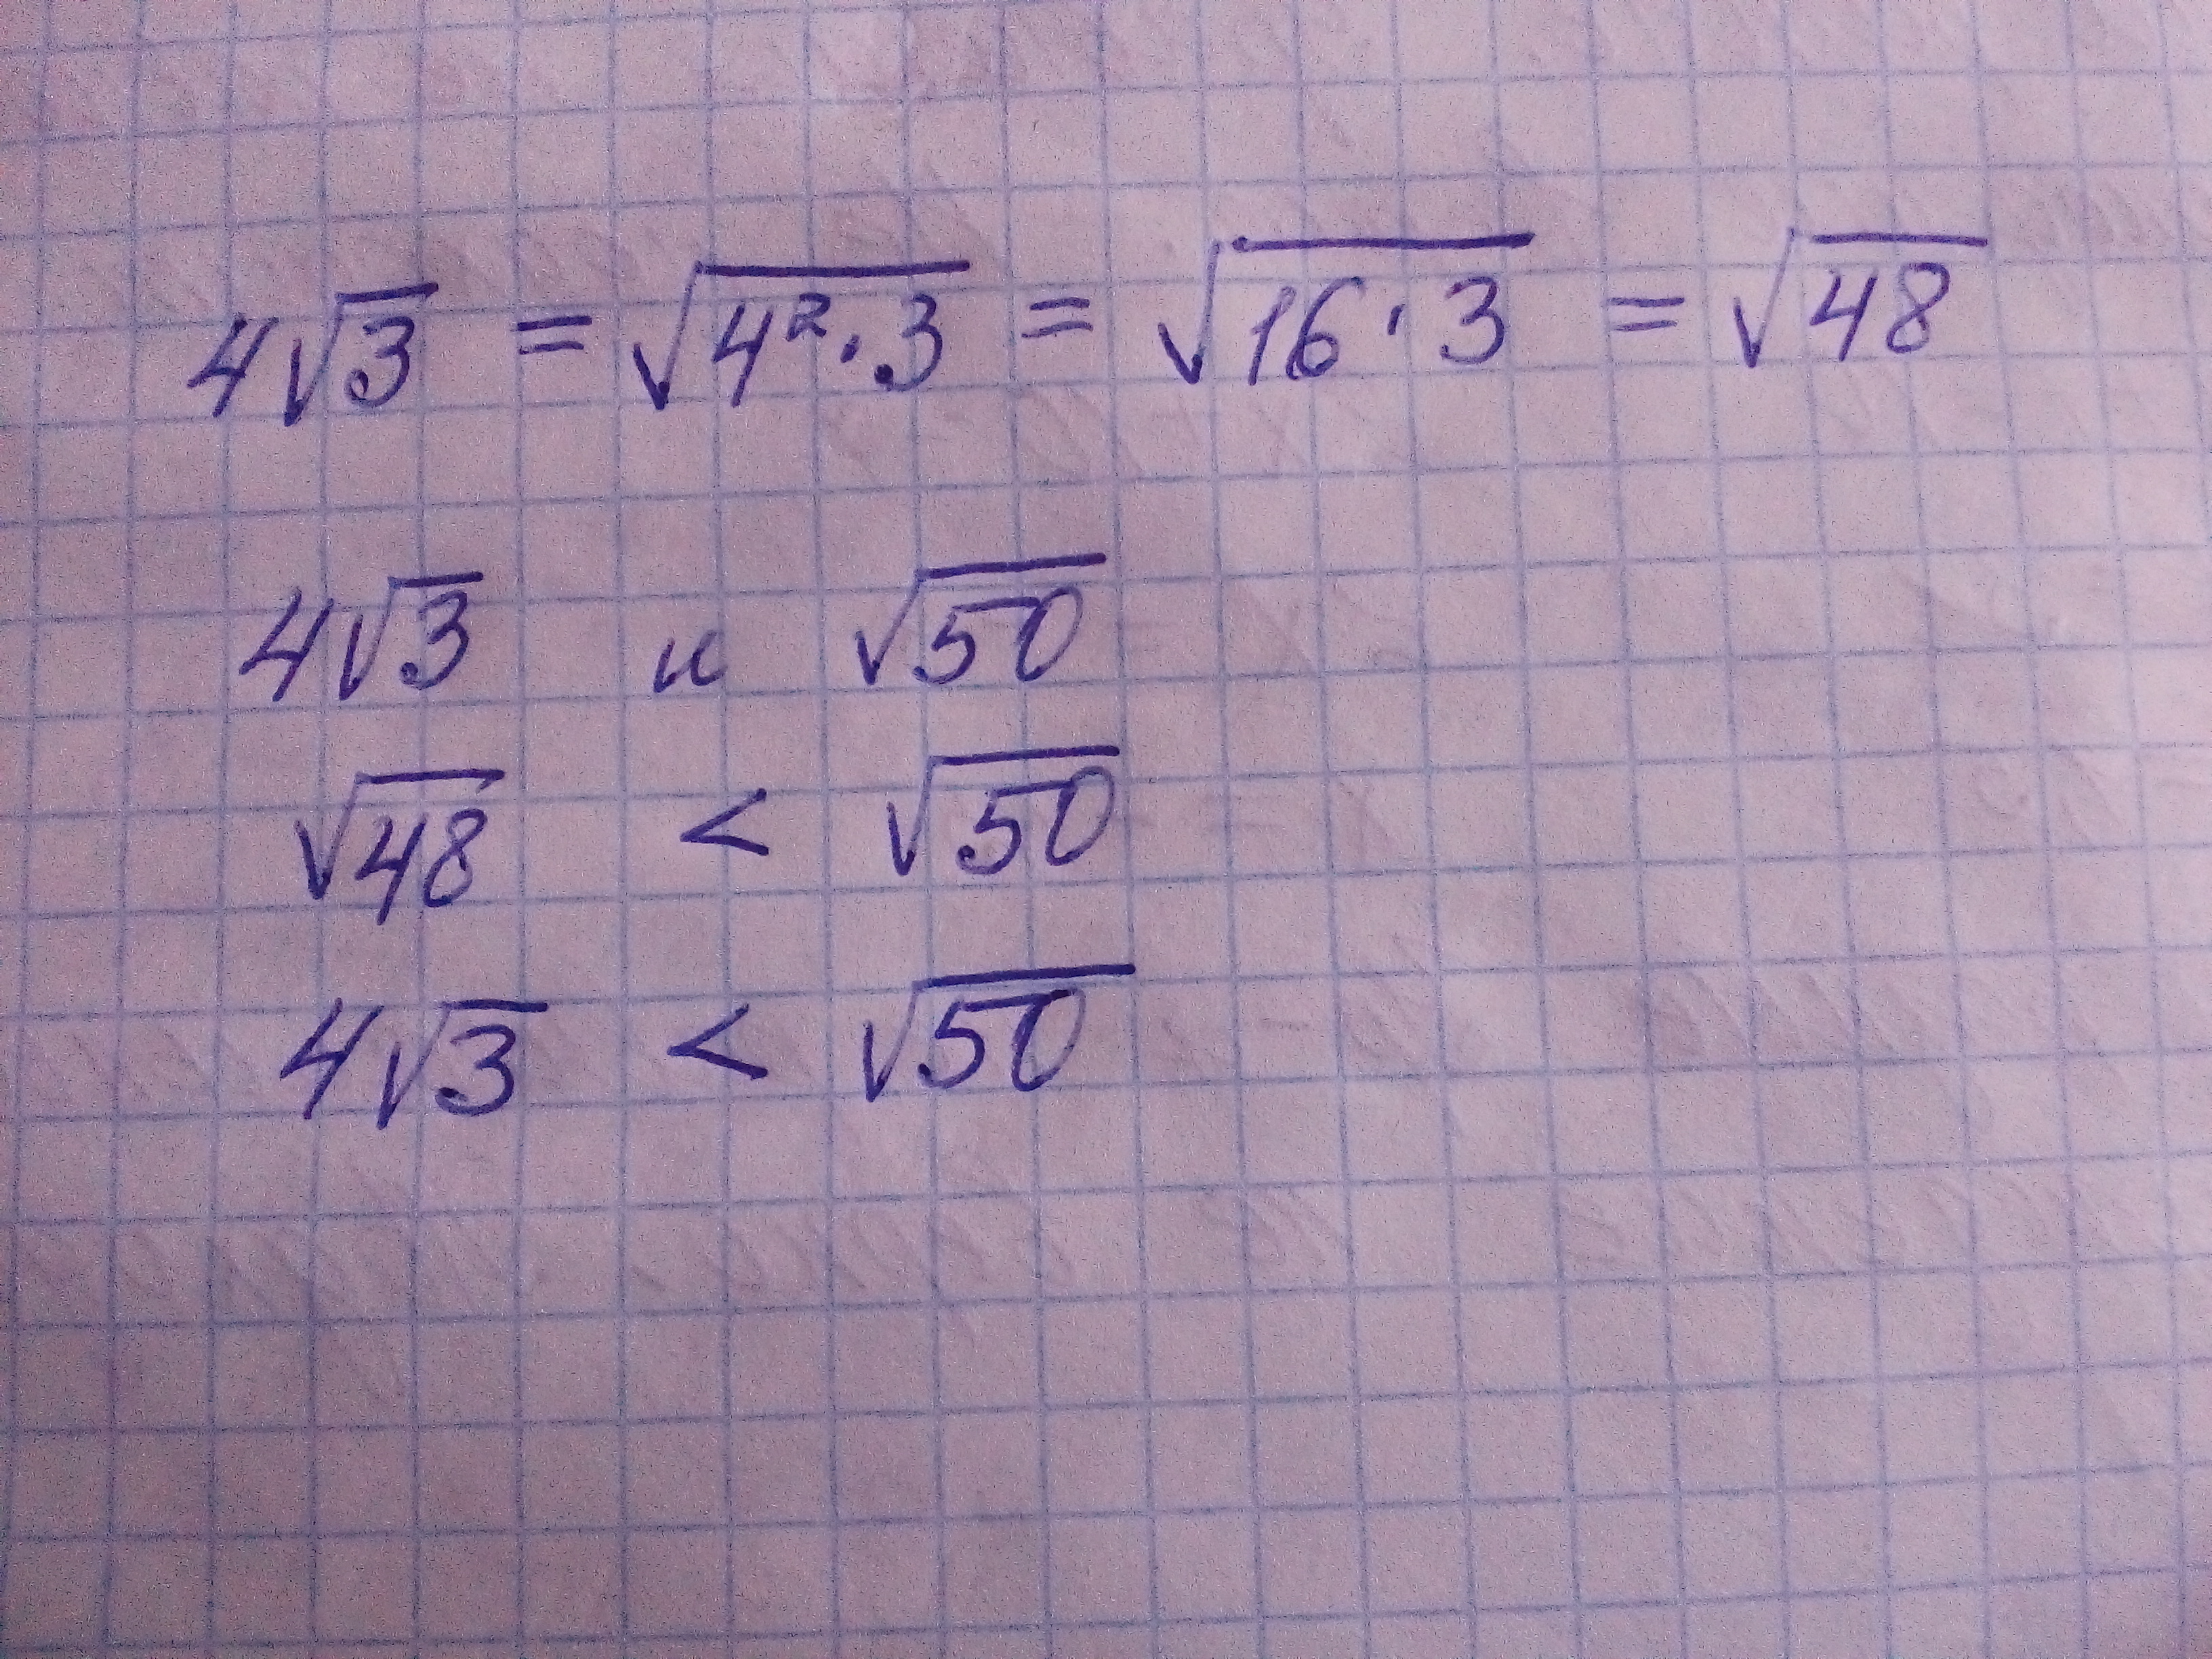 4√3 = √4²·3 = √16·3 = √48
4√3 и √50
√48 < √50
4√3 < √50